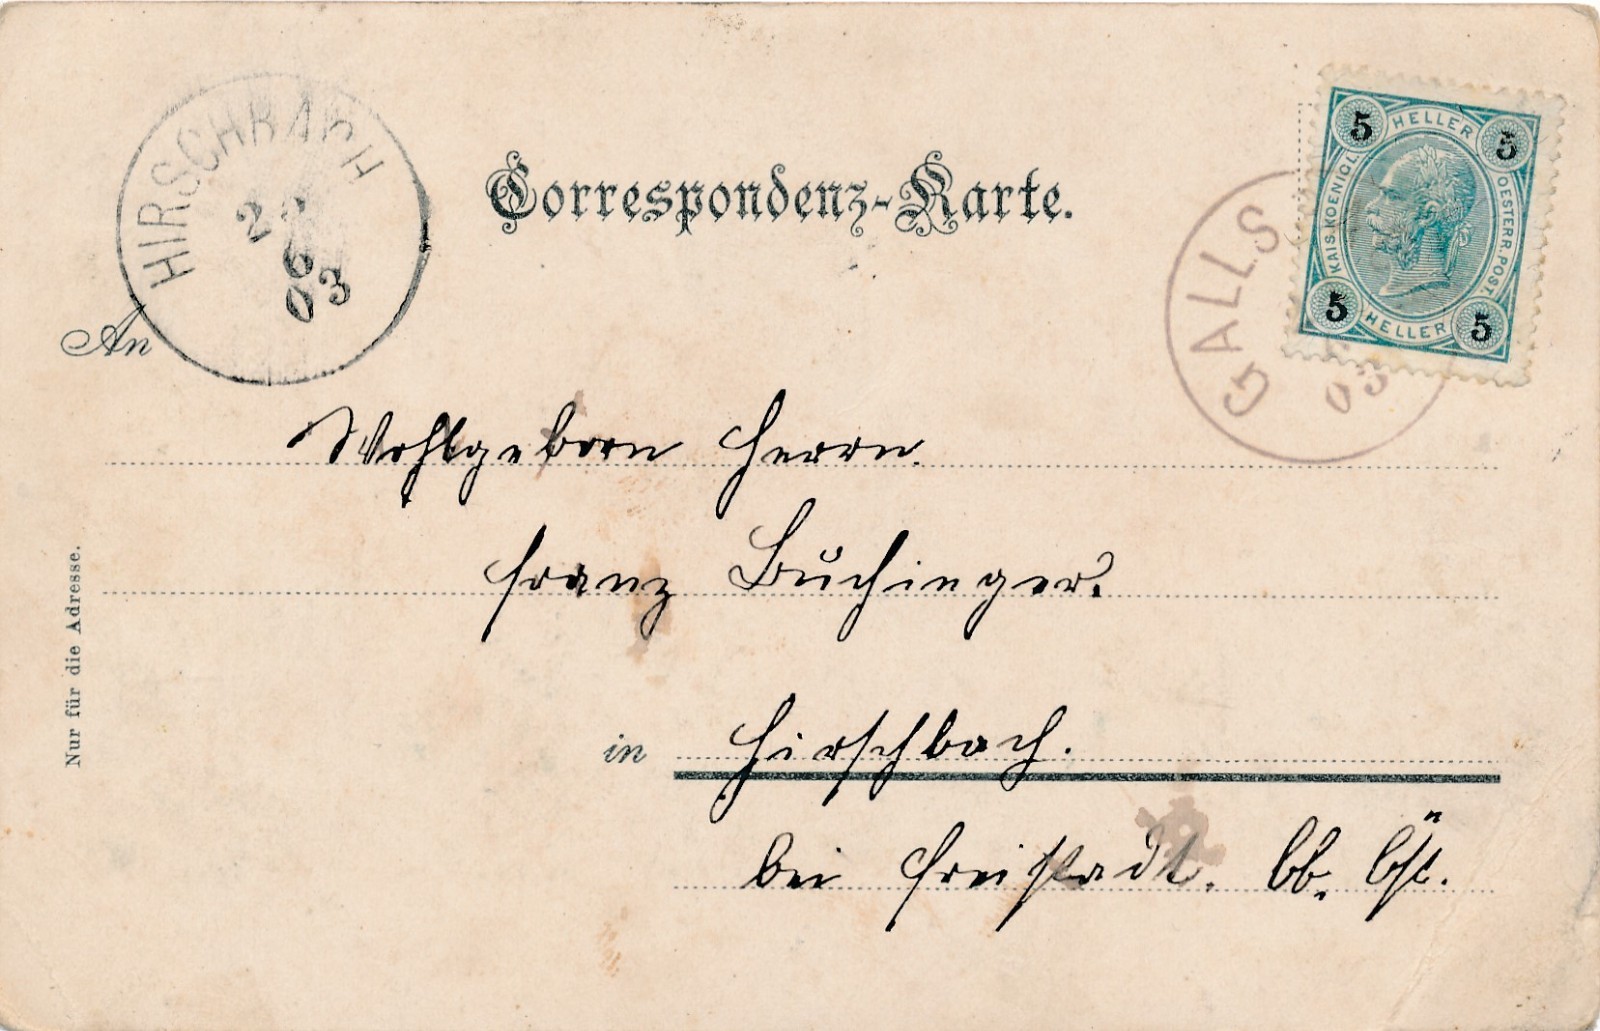 HIRSCHBACH
6
03
Correspondenz-Karte.
5 HELLER 5
KAIS. KOENIGL.
OESTERR. POST.
5 HELLER 5
GALLS
03
An
Wohlgeborn Herrn
Franz Buchinger.
in Hirschbach.
bei Freistadt.
Nur für die Adresse.